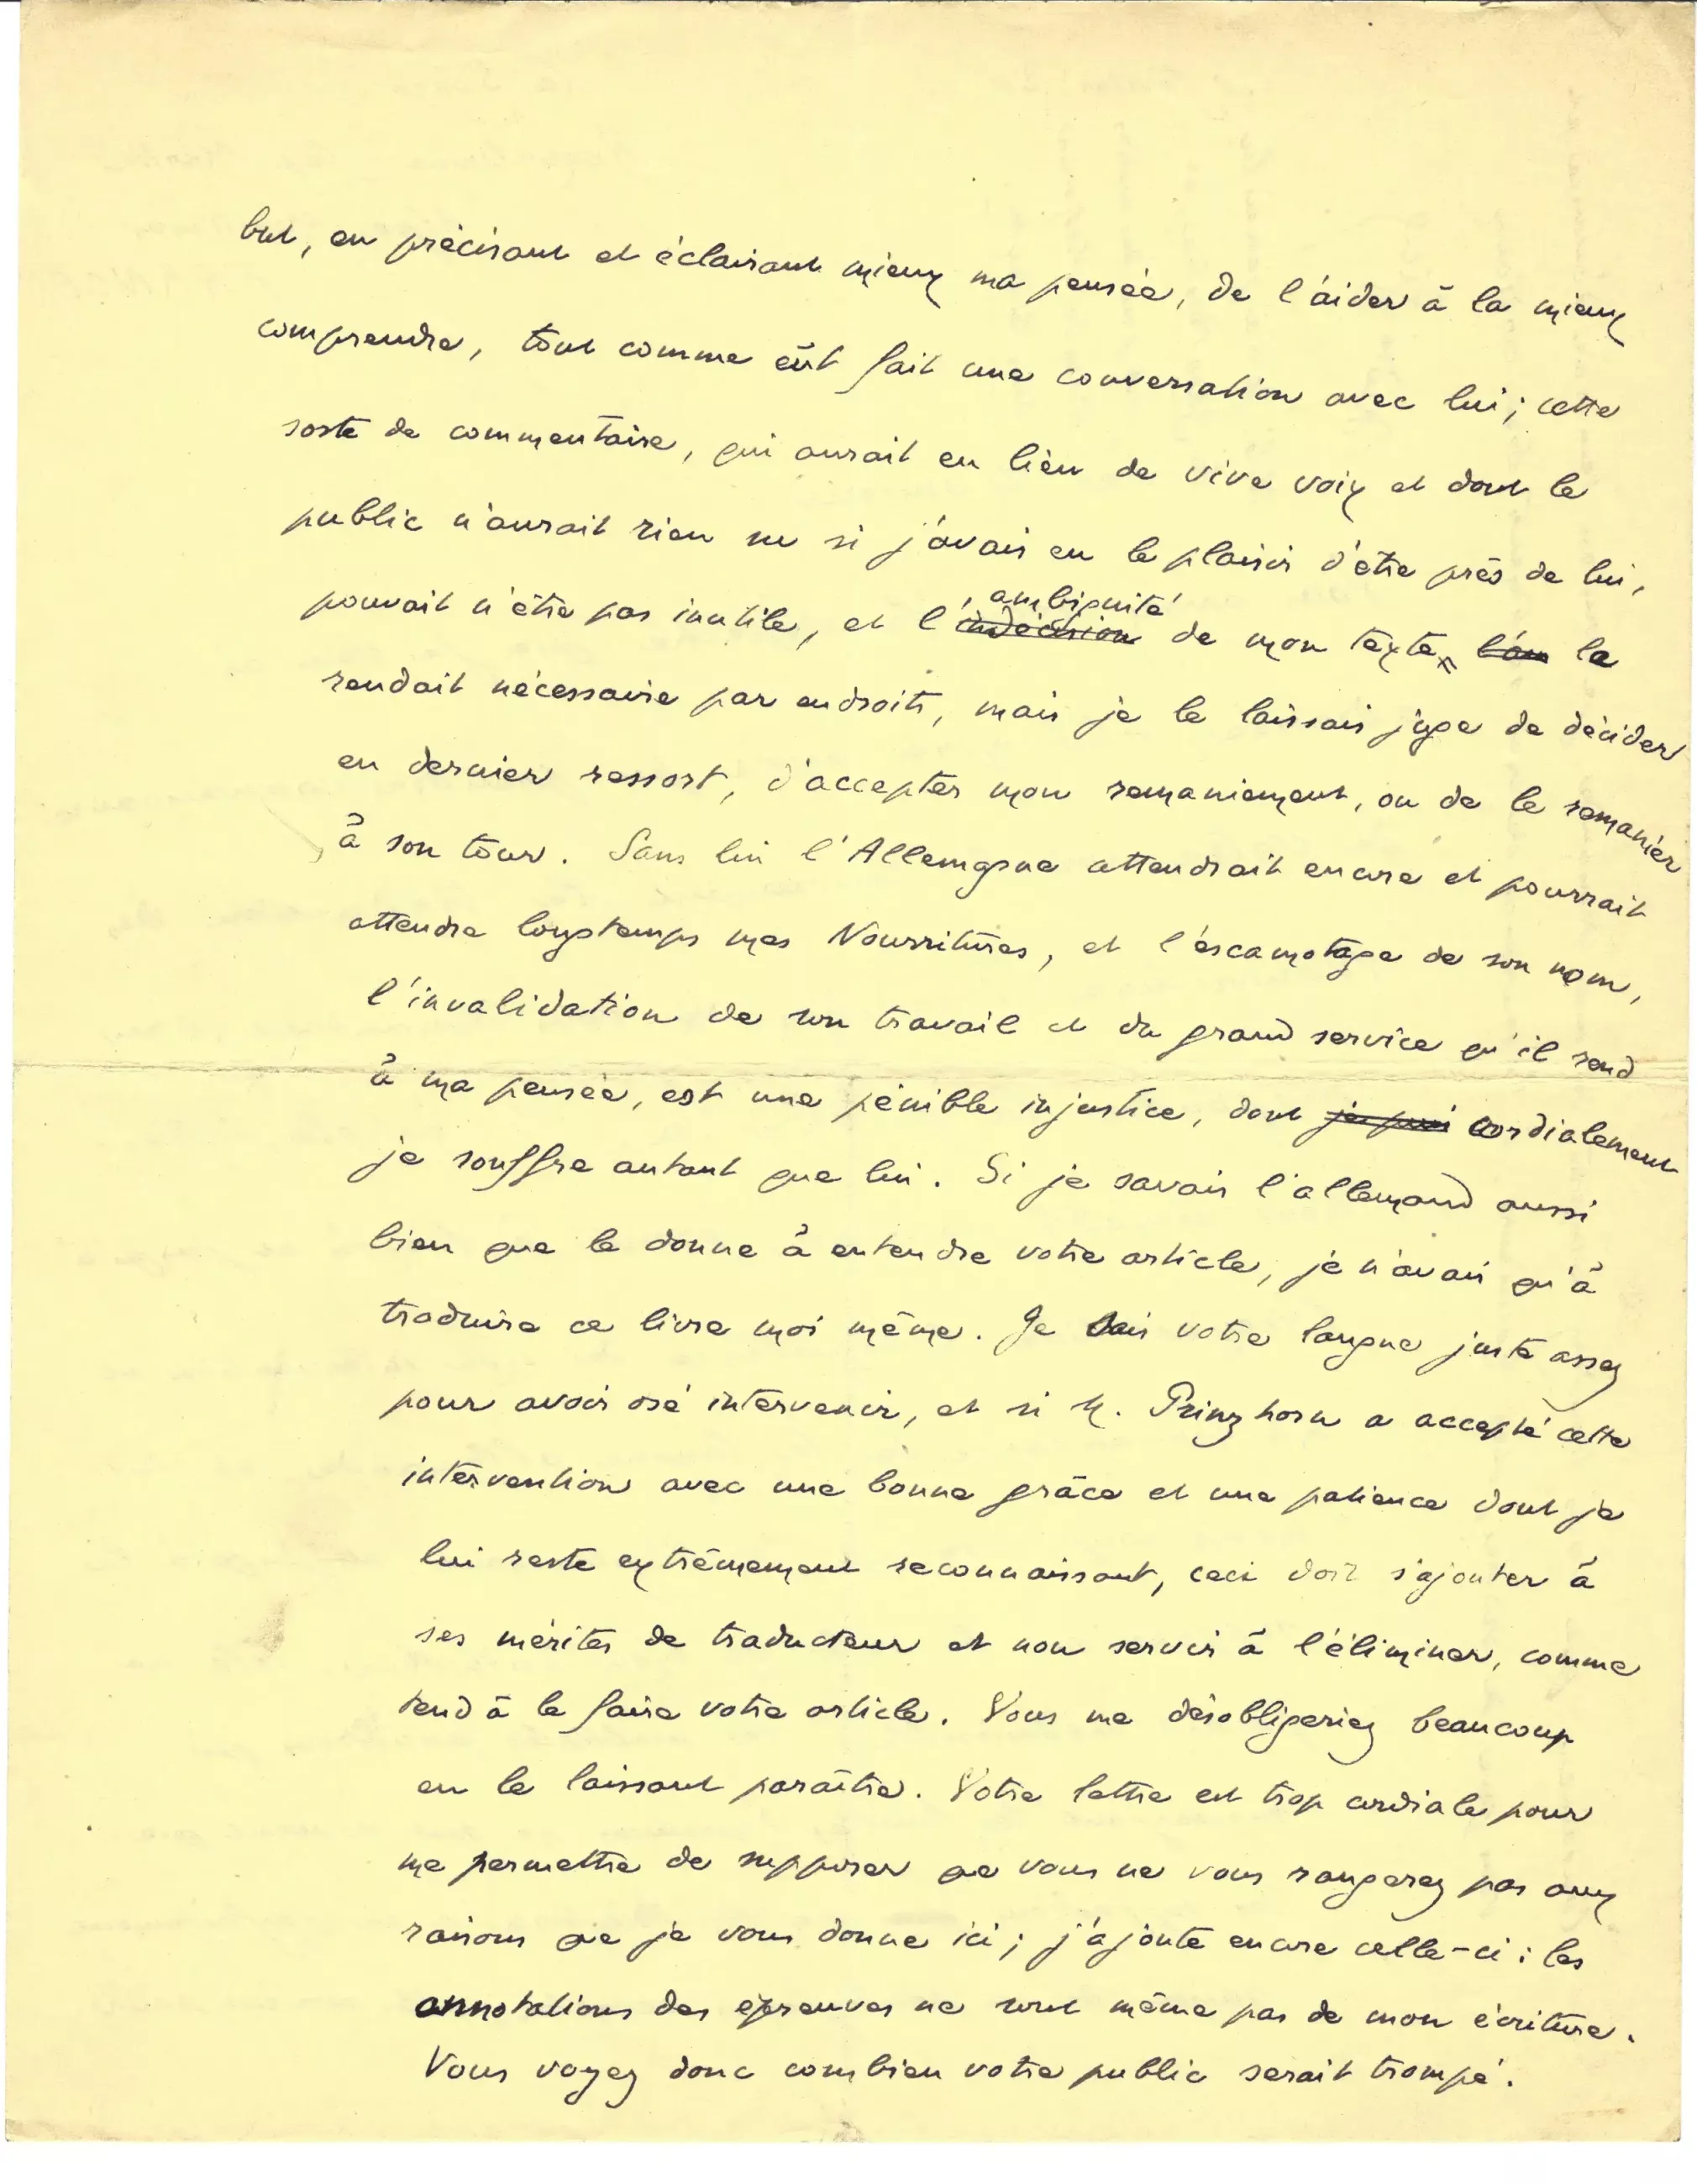 but, en précisant et éclairant mieux ma pensée, de l'aider à la mieux
comprendre, tout comme eût fait une conversation avec lui ; cette
sorte de commentaire, qui aurait eu lieu de vive voix et dont le
public n'aurait rien su si j'avais eu le plaisir d'être près de lui,
ambiguité
pouvait n'être pas inutile, et l'indécision de mon texte, l'on le
rendait nécessaire par endroits, mais je le laissais juge de décider
en dernier ressort, d'accepter mon remaniement, ou de le remanier
à son tour. Sans lui l'Allemagne attendrait encore et pourrait
attendre longtemps mes Nourritures, et l'escamotage de son nom,
l'invalidation de son travail et du grand service qu'il rend
à ma pensée, est une pénible injustice, dont cordialement
je souffre autant que lui. Si je savais l'allemand aussi
bien que le donne à entendre votre article, je n'avais qu'à
traduire ce livre moi même. Je sais votre langue juste assez
pour avoir osé intervenir, et si M. Prinzhorn a accepté cette
intervention avec une bonne grâce et une patience dont je
lui reste extrêmement reconnaissant, ceci doit s'ajouter à
ses mérites de traducteur et non servir à l'éliminer, comme
tend à le faire votre article. Vous me désobligeriez beaucoup
en le laissant paraître. Votre lettre est trop cordiale pour
me permettre de supposer que vous ne vous rangerez pas aux
raisons que je vous donne ici ; j'ajoute encore celle-ci : les
annotations des épreuves ne sont même pas de mon écriture.
Vous voyez donc combien votre public serait trompé.